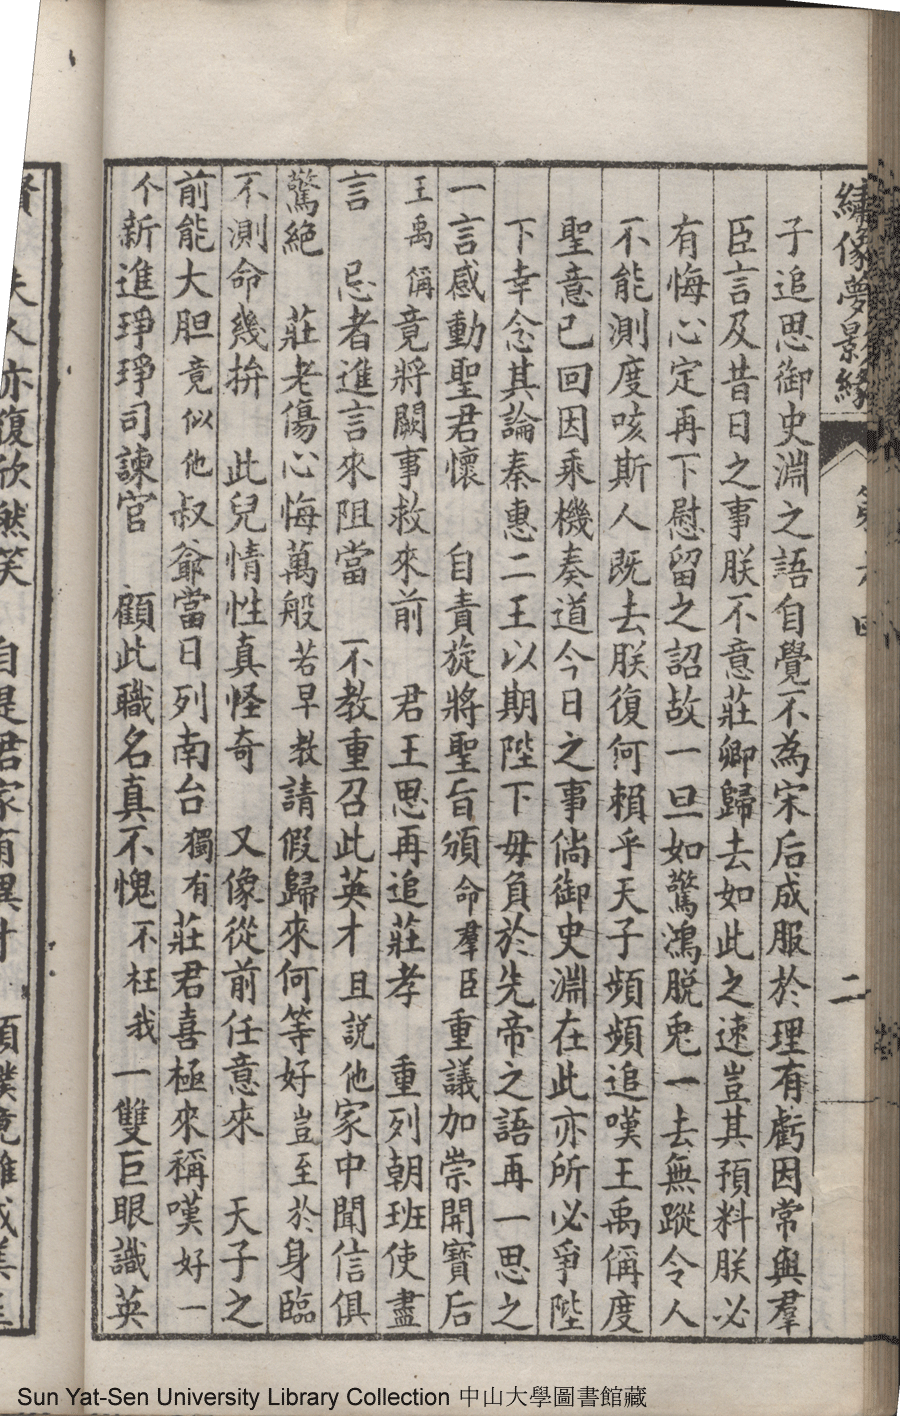 繡像夢景緣
二
子追思御史淵之語自覺不為宋后成服於理有虧因常與羣
臣言及昔日之事朕不意莊卿歸去如此之速豈其預料朕必
有悔心定再下慰留之詔故一旦如驚鴻脫兎一去無蹤令人
不能測度咳斯人既去朕復何賴乎天子頻頻追嘆王禹偁度
聖意已回因乘機奏道今日之事倘御史淵在此亦所必爭陛
下幸念其論秦惠二王以期陛下毋負於先帝之語再一思之
一言感動聖君懷　自責旋將聖旨頒命羣臣重議加崇開寶后
王禹偁竟將闕事救來前　君王思再追莊孝　重列朝班使盡
言　忌者進言來阻當　不教重召此英才且說他家中聞信俱
驚絕　莊老傷心悔萬般若早教請假歸來何等好豈至於身臨
不測命幾拚　此兒情性真怪奇　又像從前任意來　天子之
前能大胆竟似他叔爺當日列南台獨有莊君喜極來稱嘆好一
个新進琤琤司諫官　顧此職名真不愧不枉我一雙巨眼識英
夫人亦復欣然笑　自是君家有異才